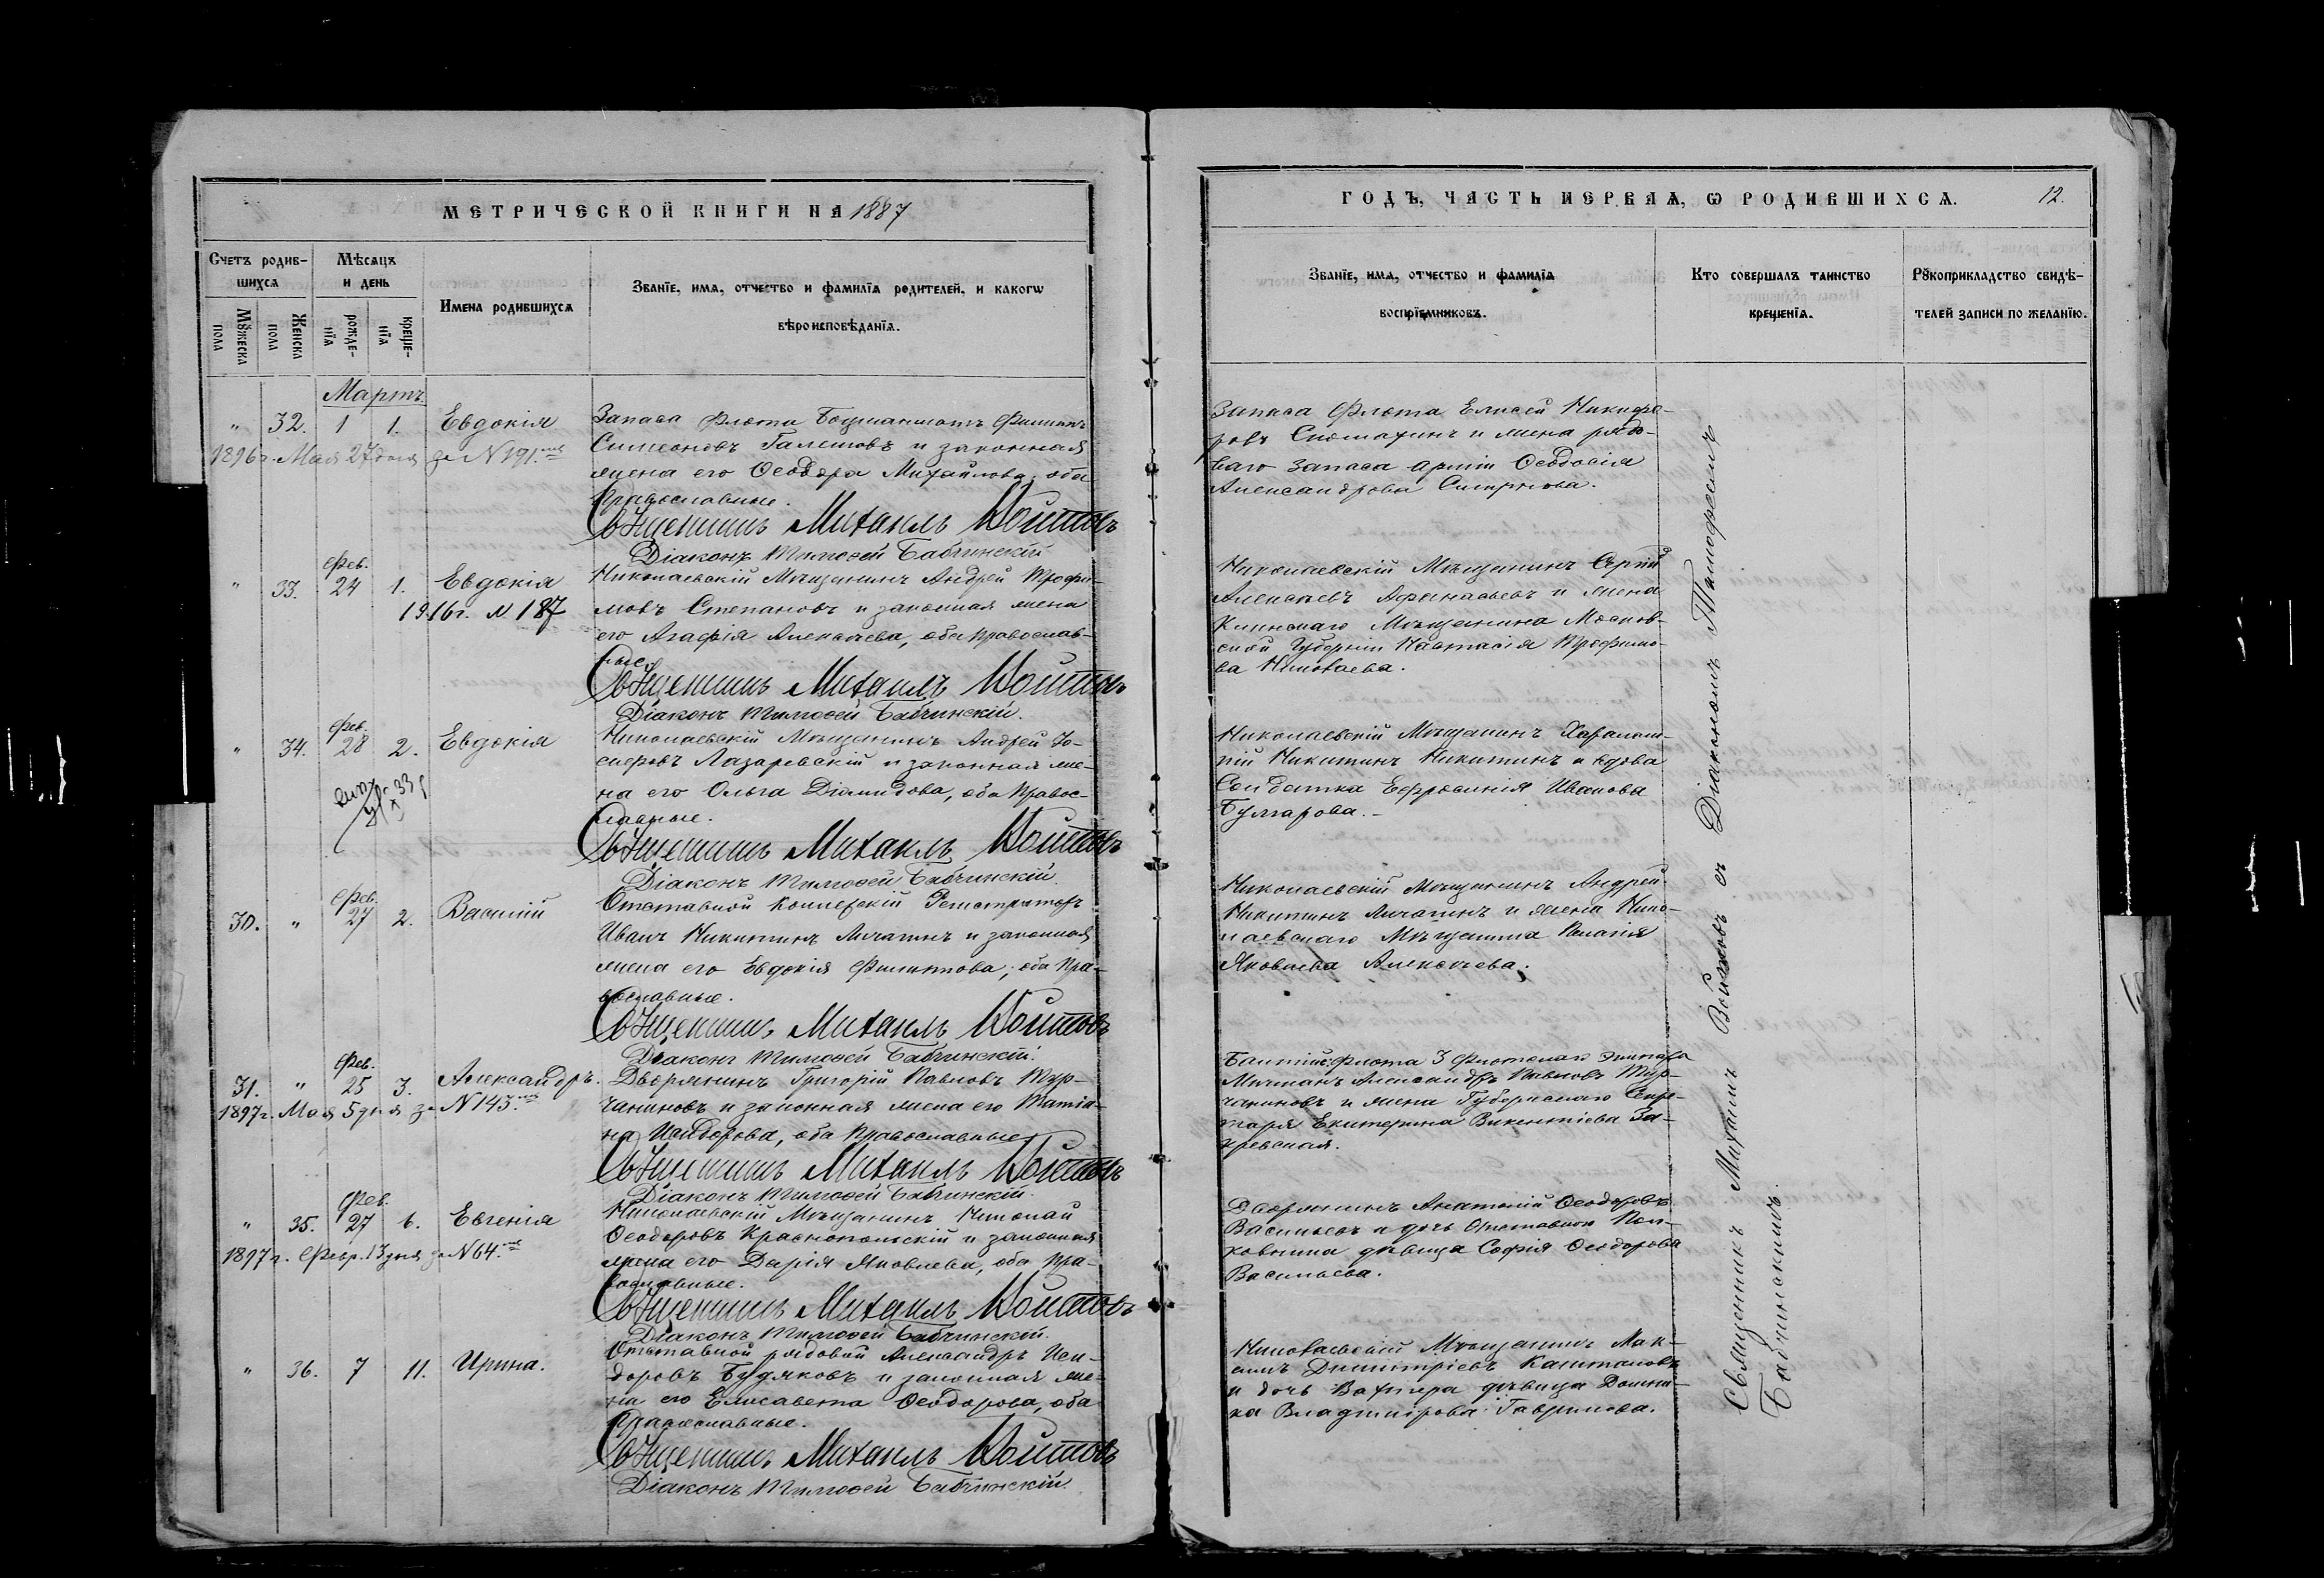 МЕТРИЧЕСКОЙ КНИГИ НА 1887
Счетъ родив-
шихся
Мѣсяцъ
и день
Имена родившихся
Званїе, имя, отчество и фамилїя родителей, и какогѡ
вѣроисповѣданїя.
Мꙋжеска
пола
Женска
пола
рожде-
нїя
креще-
нїя
Мартъ
" 32. 1 1. Евдокія
1896 г. Мая 27 дня за N 191.
Запаса Флота Боцманматъ Филиппъ
Симеоновъ Галетовъ и законная
жена его Ѳеодора Михайлова, оба
Православные.
Священникъ Михаилъ Войтовъ
Діаконъ Тимоѳей Бабчинскій
" 33. Фев. 24 1. Евдокія
1916 г. N 187
Николаевскій Мѣщанинъ Андрей Трофи-
мовъ Степановъ и законная жена
его Агафія Алексѣева, оба Православ-
ные.
Священникъ Михаилъ Войтовъ
Діаконъ Тимоѳей Бабчинскій.
" 34. Фев. 28 2. Евдокія
Николаевскій Мѣщанинъ Андрей Іо-
сифовъ Лазаревскій и законная же-
на его Ольга Діамидова, оба Правос-
лавные.
Священникъ Михаилъ Войтовъ
Діаконъ Тимоѳей Бабчинскій.
30. " Фев. 27 2. Василій
Отставной Коллежскій Регистраторъ
Иванъ Никитинъ Личагинъ и законная
жена его Евдокія Филиппова, оба Пра-
вославные.
Священникъ Михаилъ Войтовъ
Діаконъ Тимоѳей Бабчинскій.
31. " Фев. 25 3. Александръ.
1897 г. Мая 5 дня за N 143.
Дворянинъ Григорій Павловъ Тур-
чаниновъ и законная жена его Татіа-
на Исидорова, оба Православные.
Священникъ Михаилъ Войтовъ
Діаконъ Тимоѳей Бабчинскій.
" 35. Фев. 27 6. Евгенія
1897 г. Февр. 13 дня за N 64.
Николаевскій Мѣщанинъ Николай
Ѳеодоровъ Краснопольскій и законная
жена его Дарія Яковлева, оба Пра-
вославные.
Священникъ Михаилъ Войтовъ
Діаконъ Тимоѳей Бабчинскій.
" 36. 7 11. Ирина.
Отставной рядовой Александръ Иси-
доровъ Будяковъ и законная же-
на его Елисавета Ѳеодорова, оба
Православные.
Священникъ Михаилъ Войтовъ
Діаконъ Тимоѳей Бабчинскій.
ГОДЪ, ЧАСТЬ ПЕРВАЯ, Ѡ РОДИВШИХСЯ.
12.
Званїе, имя, отчество и фамилїя
воспрїемниковъ.
Кто совершалъ таинство
крещенїя.
Рꙋкоприкладство свидѣ-
телей записи по желанїю.
Запаса Флота Елисей Никифо-
ровъ Сномахинъ и жена рядо-
ваго запаса арміи Ѳеодосія
Александрова Смирнова.
Николаевскій Мѣщанинъ Сергій
Алексѣевъ Афанасьевъ и жена
Клинскаго Мѣщанина Москов-
ской Губерніи Настасія Трофимо-
ва Николаева.
Николаевскій Мѣщанинъ Харалам-
пій Никитинъ Никитинъ и вдова
Солдатка Ефросинія Иванова
Булгарова.
Николаевскій Мѣщанинъ Андрей
Никитинъ Личагинъ и жена Нико-
лаевскаго Мѣщанина Пелагія
Яковлева Алексѣева.
Балтійс. флота 3 Флотскаго Экипажа
Мичманъ Александръ Павловъ Тур-
чаниновъ и жена Губернскаго Секре-
таря Екатерина Викентіева За-
кревская.
Дворянинъ Анатолій Ѳеодоровъ
Васильевъ и дочь Отставного Пол-
ковника дѣвица Софія Ѳеодорова
Васильева.
Николаевскій Мѣщанинъ Мак-
симъ Димитріевъ Каштановъ
и дочь Вахтера дѣвица Домни-
ка Владимірова Гаврилова.
Священникъ Михаилъ Войтовъ съ Діакономъ Тимофеемъ
Бабчинскимъ.